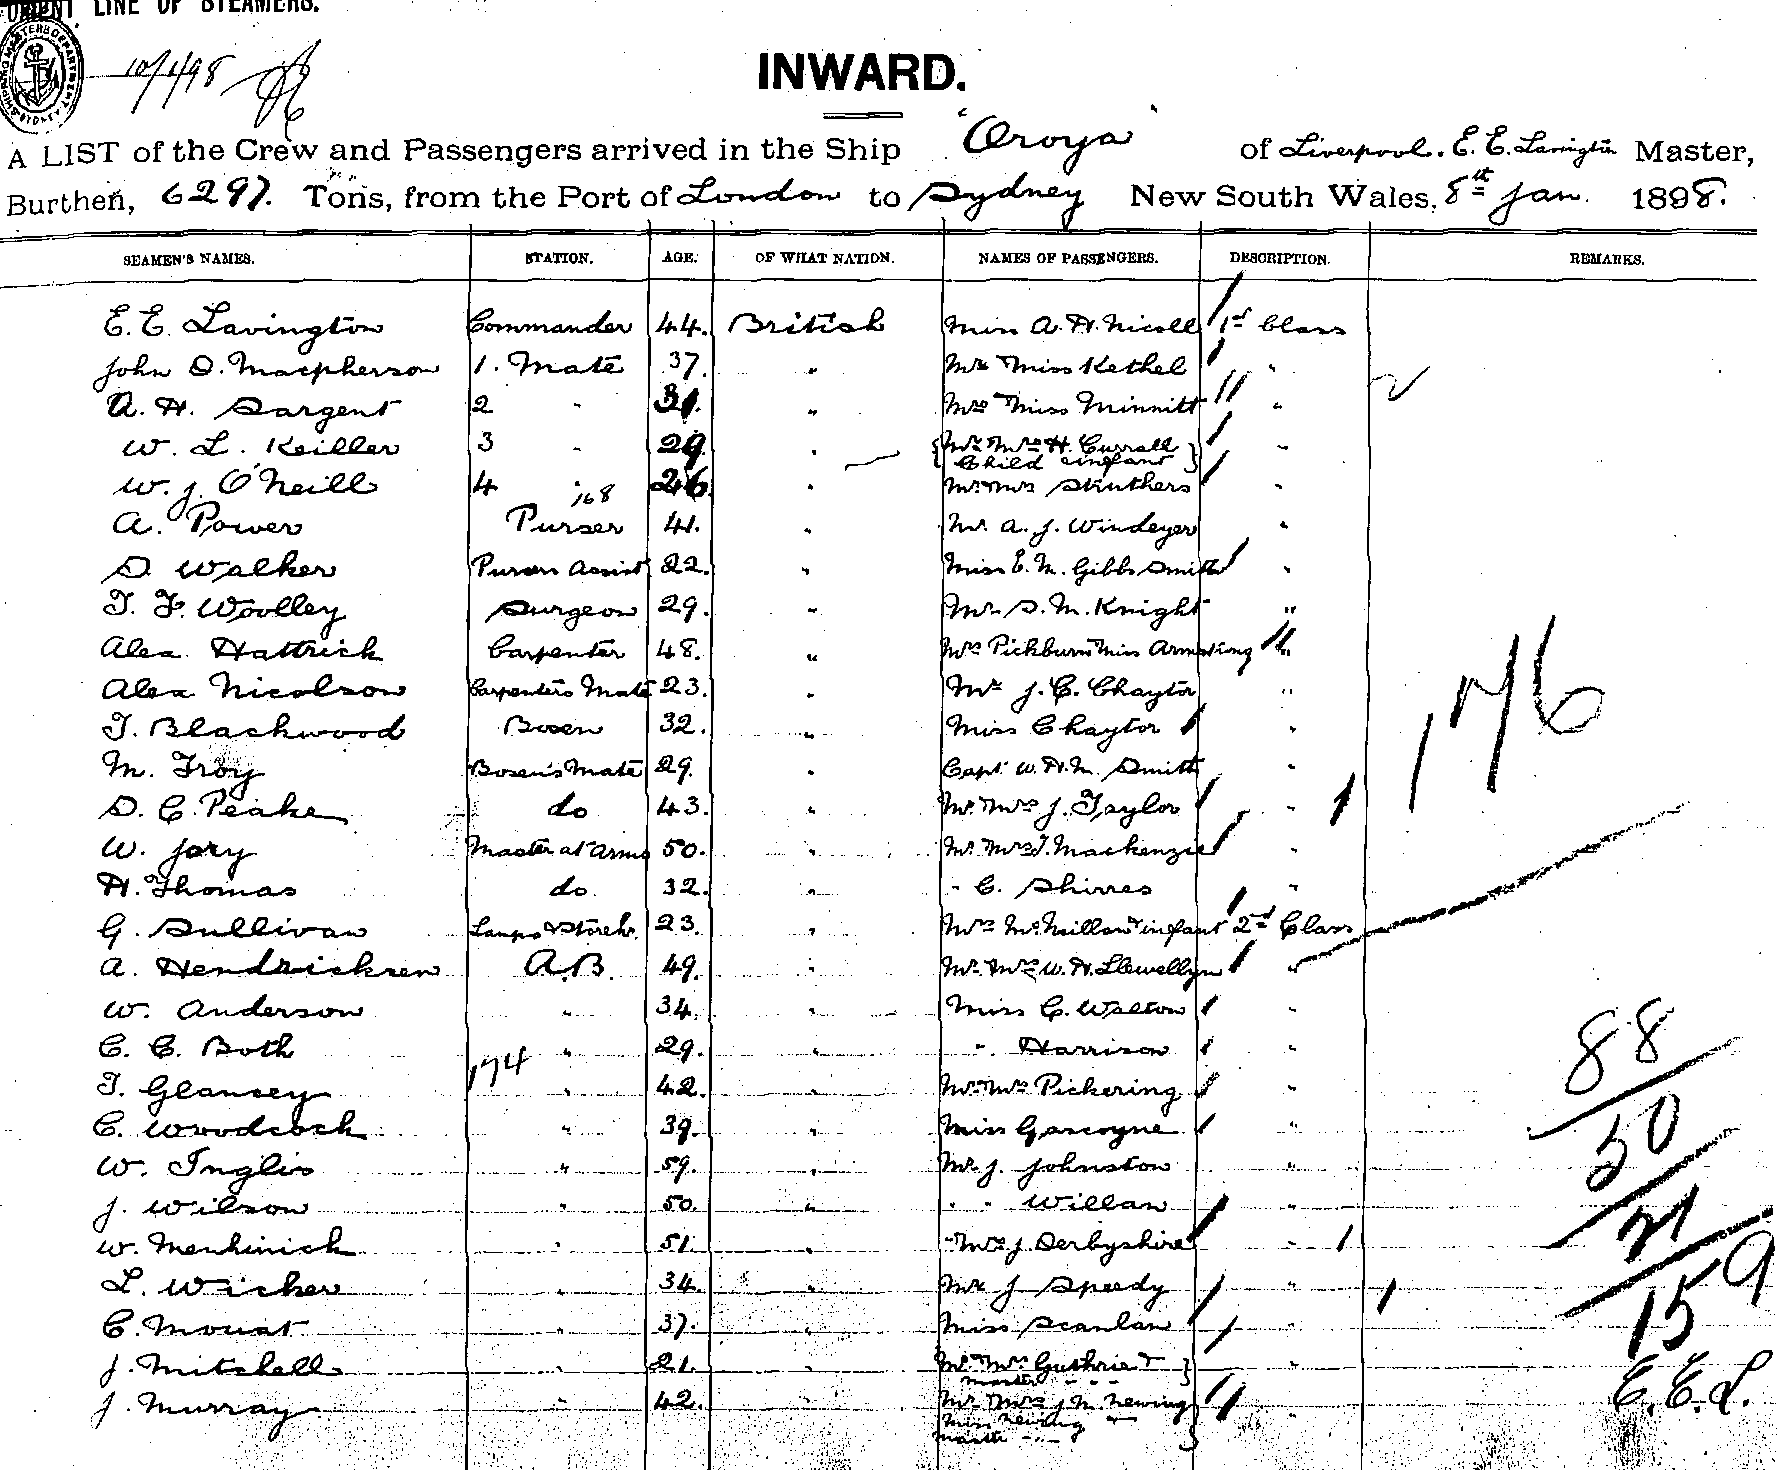 ORIENT LINE OF STEAMERS.
SHIPPING MASTERS DEPARTMENT SYDNEY
10/1/98
INWARD.
A LIST of the Crew and Passengers arrived in the Ship "Oroya" of Liverpool. E. E. Lavington Master,
Burthen, 6297. Tons, from the Port of London to Sydney New South Wales, 8th Jan. 1898.
SEAMEN'S NAMES. STATION. AGE. OF WHAT NATION. NAMES OF PASSENGERS. DESCRIPTION. REMARKS.
E. E. Lavington Commander 44. British Miss A. H. Nicoll 1st Class
John D. Macpherson 1. Mate 37. " Mr Miss Kethel "
A. H. Sargent 2 " 31. " Mrs Miss Minnitt "
W. L. Keiller 3 " 29. " {Mr. Mrs H. Currall } "
Child & infant
W. J. O'Neill 4 " 26. " Mr. Mrs Skuthers
168
A. Power Purser 41. " Mr. A. J. Windeyer "
D. Walker Pursers Assist 22. " Miss E. M. Gibbs Smith "
T. F. Woolley Surgeon 29. " Mr. S. M. Knight "
Alex. Hattrick Carpenter 48. " Mrs Pickburn Miss Armstrong "
Alex Nicolson Carpenters Mate 23. " Mr J. C. Chaytor "
T. Blackwood Bosen 32. " Miss Chaytor "
M. Troy Bosen's Mate 29. " Capt. W. H. M. Smith "
176
D. C. Peake do 43. " Mr. Mrs J. Taylor "
W. Jory Master at Arms 50. " Mr. Mrs T. Mackenzie "
H. Thomas do. 32. " " C. Shirres "
G. Sullivan Lamps & Storekr. 23. " Mrs McMillan & infant 2nd Class
A. Hendricksen A.B. 49. " Mr. Mrs W. H. Llewellyn "
W. Anderson " 34. " Miss C. Walton "
C. C. Both " 29. " " Harrison "
88
174
T. Glancey " 42. " Mr. Mrs Pickering "
C. Woodcock " 39. " Miss Gascoyne "
50
W. Inglis " 59. " Mr. J. Johnston "
J. Wilson " 50. " " " Willan "
21
W. Menhinick " 51. " " Mrs J. Derbyshire "
L. Wicker " 34. " Mr J Speedy "
159
C. Mouat " 37. " Miss Scanlan "
J. Mitchell " 21. " Mr. Mrs Guthrie & } "
Master " "
J. Murray " 42. " Mr. Mrs J. M. Newing } "
Miss Newing "
Master " "
E. E. L.